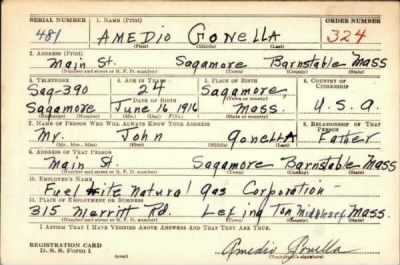 SERIAL NUMBER 1. NAME (Print) ORDER NUMBER
481 AMEDIO GONELLA 324
(First) (Middle) (Last)
2. ADDRESS (Print)
Main St. Sagamore Barnstable Mass
(Number and street or R. F. D. number) (Town) (County) (State)
3. TELEPHONE 4. AGE IN YEARS 5. PLACE OF BIRTH 6. COUNTRY OF CITIZENSHIP
Sag-390 24 Sagamore
DATE OF BIRTH (Town or county)
Sagamore June 16, 1916 Mass. U.S.A.
(Exchange) (Number) (Mo.) (Day) (Yr.) (State or country)
7. NAME OF PERSON WHO WILL ALWAYS KNOW YOUR ADDRESS 8. RELATIONSHIP OF THAT PERSON
Mr. John Gonella Father
(Mr., Mrs., Miss) (First) (Middle) (Last)
9. ADDRESS OF THAT PERSON
Main St. Sagamore Barnstable Mass
(Number and street or R. F. D. number) (Town) (County) (State)
10. EMPLOYER'S NAME
Fuel ite Natural Gas Corporation
11. PLACE OF EMPLOYMENT OR BUSINESS
315 Marrett Rd. Lexington Middlesex Mass.
(Number and street or R. F. D. number) (Town) (County) (State)
I AFFIRM THAT I HAVE VERIFIED ABOVE ANSWERS AND THAT THEY ARE TRUE.
REGISTRATION CARD
D. S. S. Form 1 Amedio Gonella
(Registrant's signature)